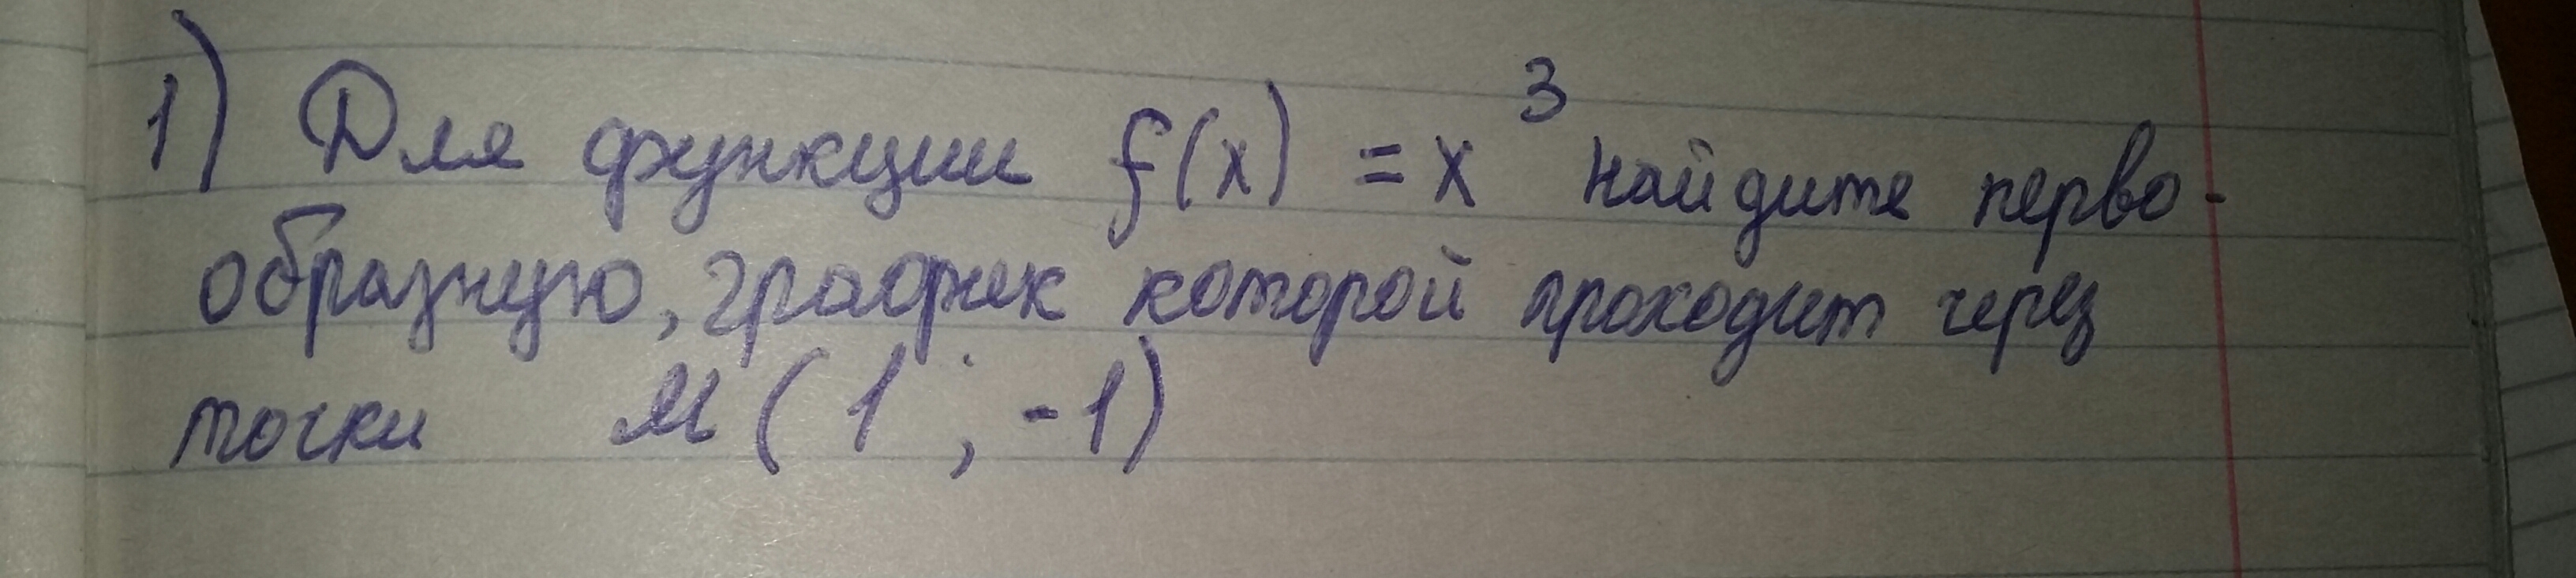 1) Для функции f(x) = x³ найдите перво-
образную, график которой проходит через
точки M(1; -1)